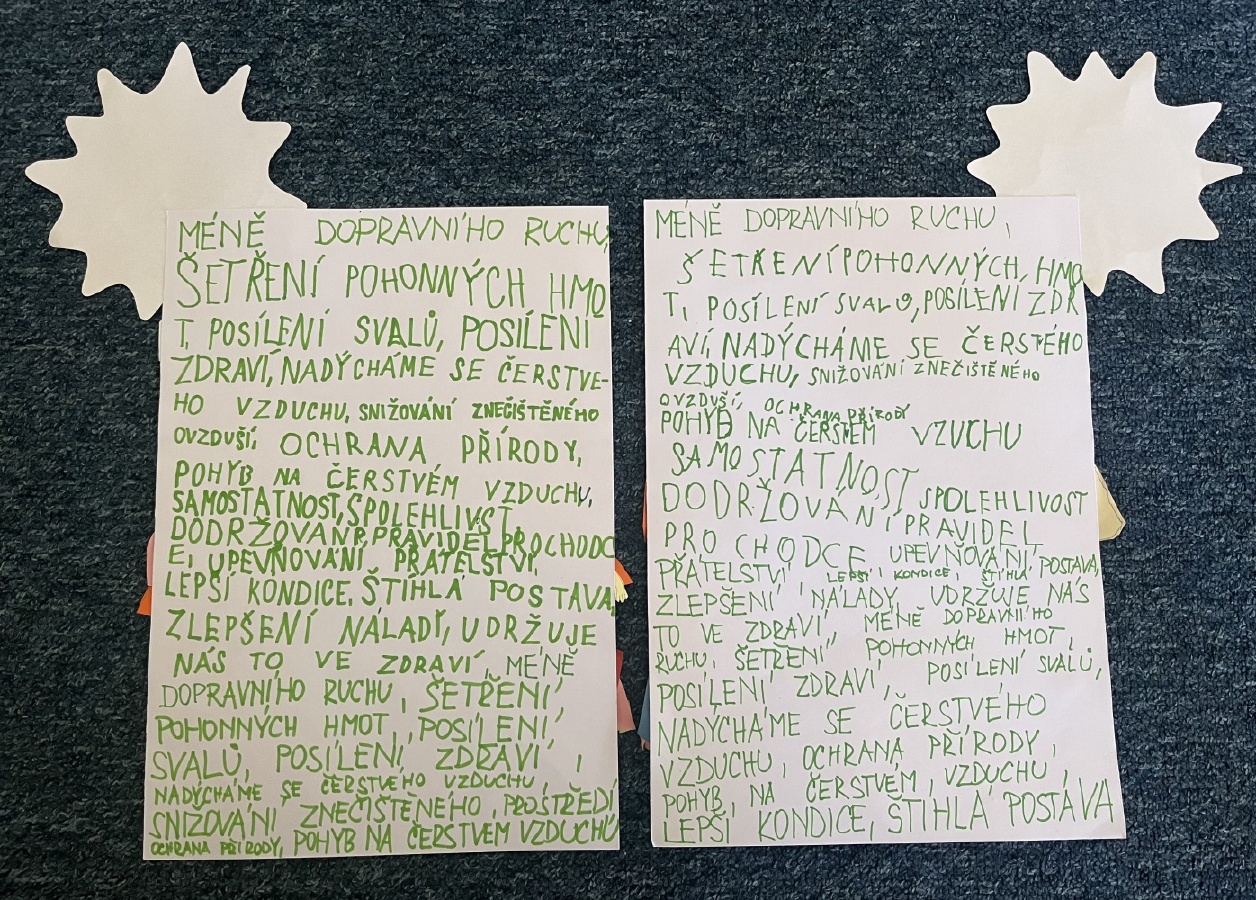 MÉNĚ DOPRAVNÍHO RUCHU,
ŠETŘENÍ POHONNÝCH HMO
T, POSÍLENÍ SVALŮ, POSÍLENÍ
ZDRAVÍ, NADÝCHÁME SE ČERSTVE-
HO VZDUCHU, SNIŽOVÁNÍ ZNEČIŠTĚNÉHO
OVZDUŠÍ, OCHRANA PŘÍRODY,
POHYB NA ČERSTVÉM VZDUCHU,
SAMOSTATNOST, SPOLEHLIVST,
DODRŽOVANP, PRAVIDEL, PROCHODC
E, UPEVŇOVÁNÍ PŘÁTELSTVÍ,
LEPŠÍ KONDICE, ŠTÍHLÁ POSTAVA,
ZLEPŠENÍ NÁLADÍ, UDRŽUJE
NÁS TO VE ZDRAVÍ, MÉNĚ
DOPRAVNÍHO RUCHU, ŠETŘENÍ
POHONNÝCH HMOT, POSÍLENÍ
SVALŮ, POSÍLENÍ ZDRAVÍ,
NADÝCHÁME SE ČERSTVÉHO VZDUCHU,
SNIŽOVÁNÍ ZNEČIŠTĚNÉHO, PROSTŘEDÍ
OCHRANA PŘÍRODY, POHYB NA ČERSTVÉM VZDUCHU
MÉNĚ DOPRAVNÍHO RUCHU,
ŠETŘENÍ POHONNÝCH, HMO
T, POSÍLENÍ SVALŮ, POSÍLENÍ ZDR
AVÍ, NADÝCHÁME SE ČERSTÉHO
VZDUCHU, SNIŽOVÁNÍ ZNEČIŠTĚNÉHO
OVZDUŠÍ, OCHRANA PŘÍRODY
POHYB NA ČERSTÉM VZUCHU
SAMOSTATNOST
DODRŽOVÁNÍ PRAVIDEL SPOLEHLIVOST
PRO CHODCE UPEVŇOVÁNÍ,
PŘÁTELSTVÍ, LEPŠÍ KONDICE, ŠTÍHLÁ POSTAVA,
ZLEPŠENÍ NÁLADY, UDRŽUJE NÁS
TO VE ZDRAVÍ, MÉNĚ DOPRAVNÍHO
RUCHU, ŠETŘENÍ POHONNÝCH HMOT,
POSÍLENÍ ZDRAVÍ, POSÍLENÍ SVALŮ,
NADÝCHÁME SE ČERSTVÉHO
VZDUCHU, OCHRANA PŘÍRODY,
POHYB, NA ČERSTVÉM, VZDUCHU,
LEPŠÍ KONDICE, ŠTÍHLÁ POSTAVA